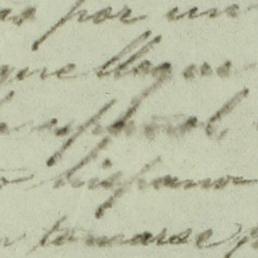 por un
que llegue
español,
hispano
tomarse